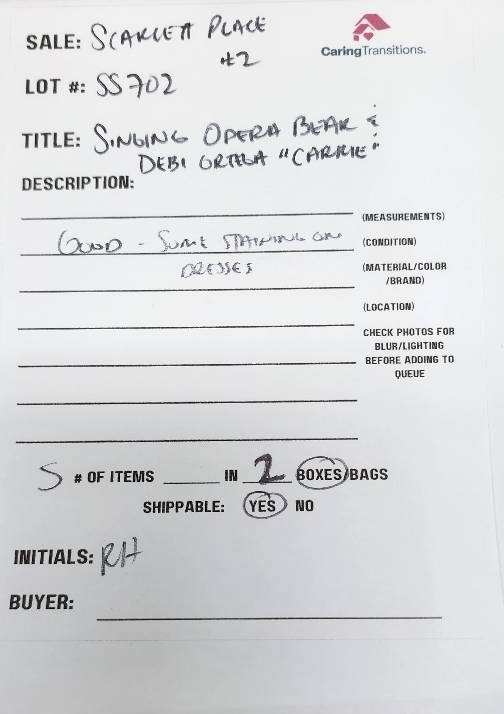 SALE: SCARLETT PLACE
#2
CaringTransitions.
LOT #: SS702
TITLE: SINGING OPERA BEAR &
DEBI ORTEGA "CARRIE"
DESCRIPTION:
(MEASUREMENTS)
GOOD - SOME STAINING ON (CONDITION)
DRESSES (MATERIAL/COLOR
/BRAND)
(LOCATION)
CHECK PHOTOS FOR
BLUR/LIGHTING
BEFORE ADDING TO
QUEUE
S # OF ITEMS IN 2 BOXES/BAGS
SHIPPABLE: YES NO
INITIALS: RH
BUYER: